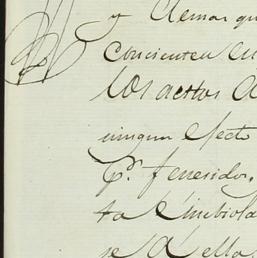 y demas qu
concienteu en
los actos d
ningun efecto
Pr. fenesidos,
ta é imbiola
se d ella